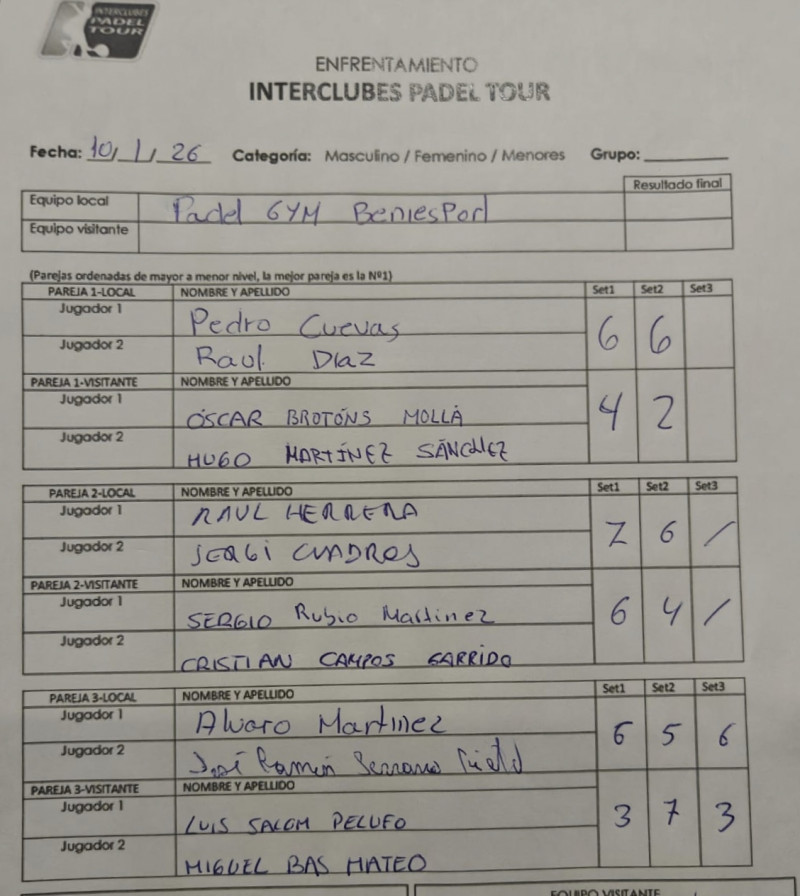 INTERCLUBES
PADEL
TOUR
ENFRENTAMIENTO
INTERCLUBES PADEL TOUR
Fecha: 10/1/26 Categoría: Masculino / Femenino / Menores Grupo:
Resultado final
Equipo local Padel GYM BeniesPort
Equipo visitante
(Parejas ordenadas de mayor a menor nivel, la mejor pareja es la Nº1)
PAREJA 1-LOCAL NOMBRE Y APELLIDO Set1 Set2 Set3
Jugador 1 Pedro Cuevas 6 6
Jugador 2 Raul Diaz
PAREJA 1-VISITANTE NOMBRE Y APELLIDO
Jugador 1 ÓSCAR BROTÓNS MOLLÀ 4 2
Jugador 2 HUGO MARTÍNEZ SÁNCHEZ
PAREJA 2-LOCAL NOMBRE Y APELLIDO Set1 Set2 Set3
Jugador 1 RAUL HERRERA 7 6 /
Jugador 2 SERGI CUADROS
PAREJA 2-VISITANTE NOMBRE Y APELLIDO
Jugador 1 SERGIO Rubio Martinez 6 4 /
Jugador 2 CRISTIAN CAMPOS GARRIDO
PAREJA 3-LOCAL NOMBRE Y APELLIDO Set1 Set2 Set3
Jugador 1 Alvaro Martinez 6 5 6
Jugador 2 José Ramón Serrano
PAREJA 3-VISITANTE NOMBRE Y APELLIDO
Jugador 1 LUIS SALOM PELUFO 3 7 3
Jugador 2 MIGUEL BAS MATEO
EQUIPO VISITANTE